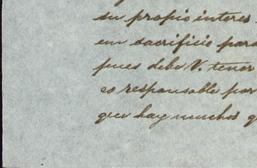 su propio interes
un sacrificio para
pues debe V. tener
es responsable por
que hay muchos q